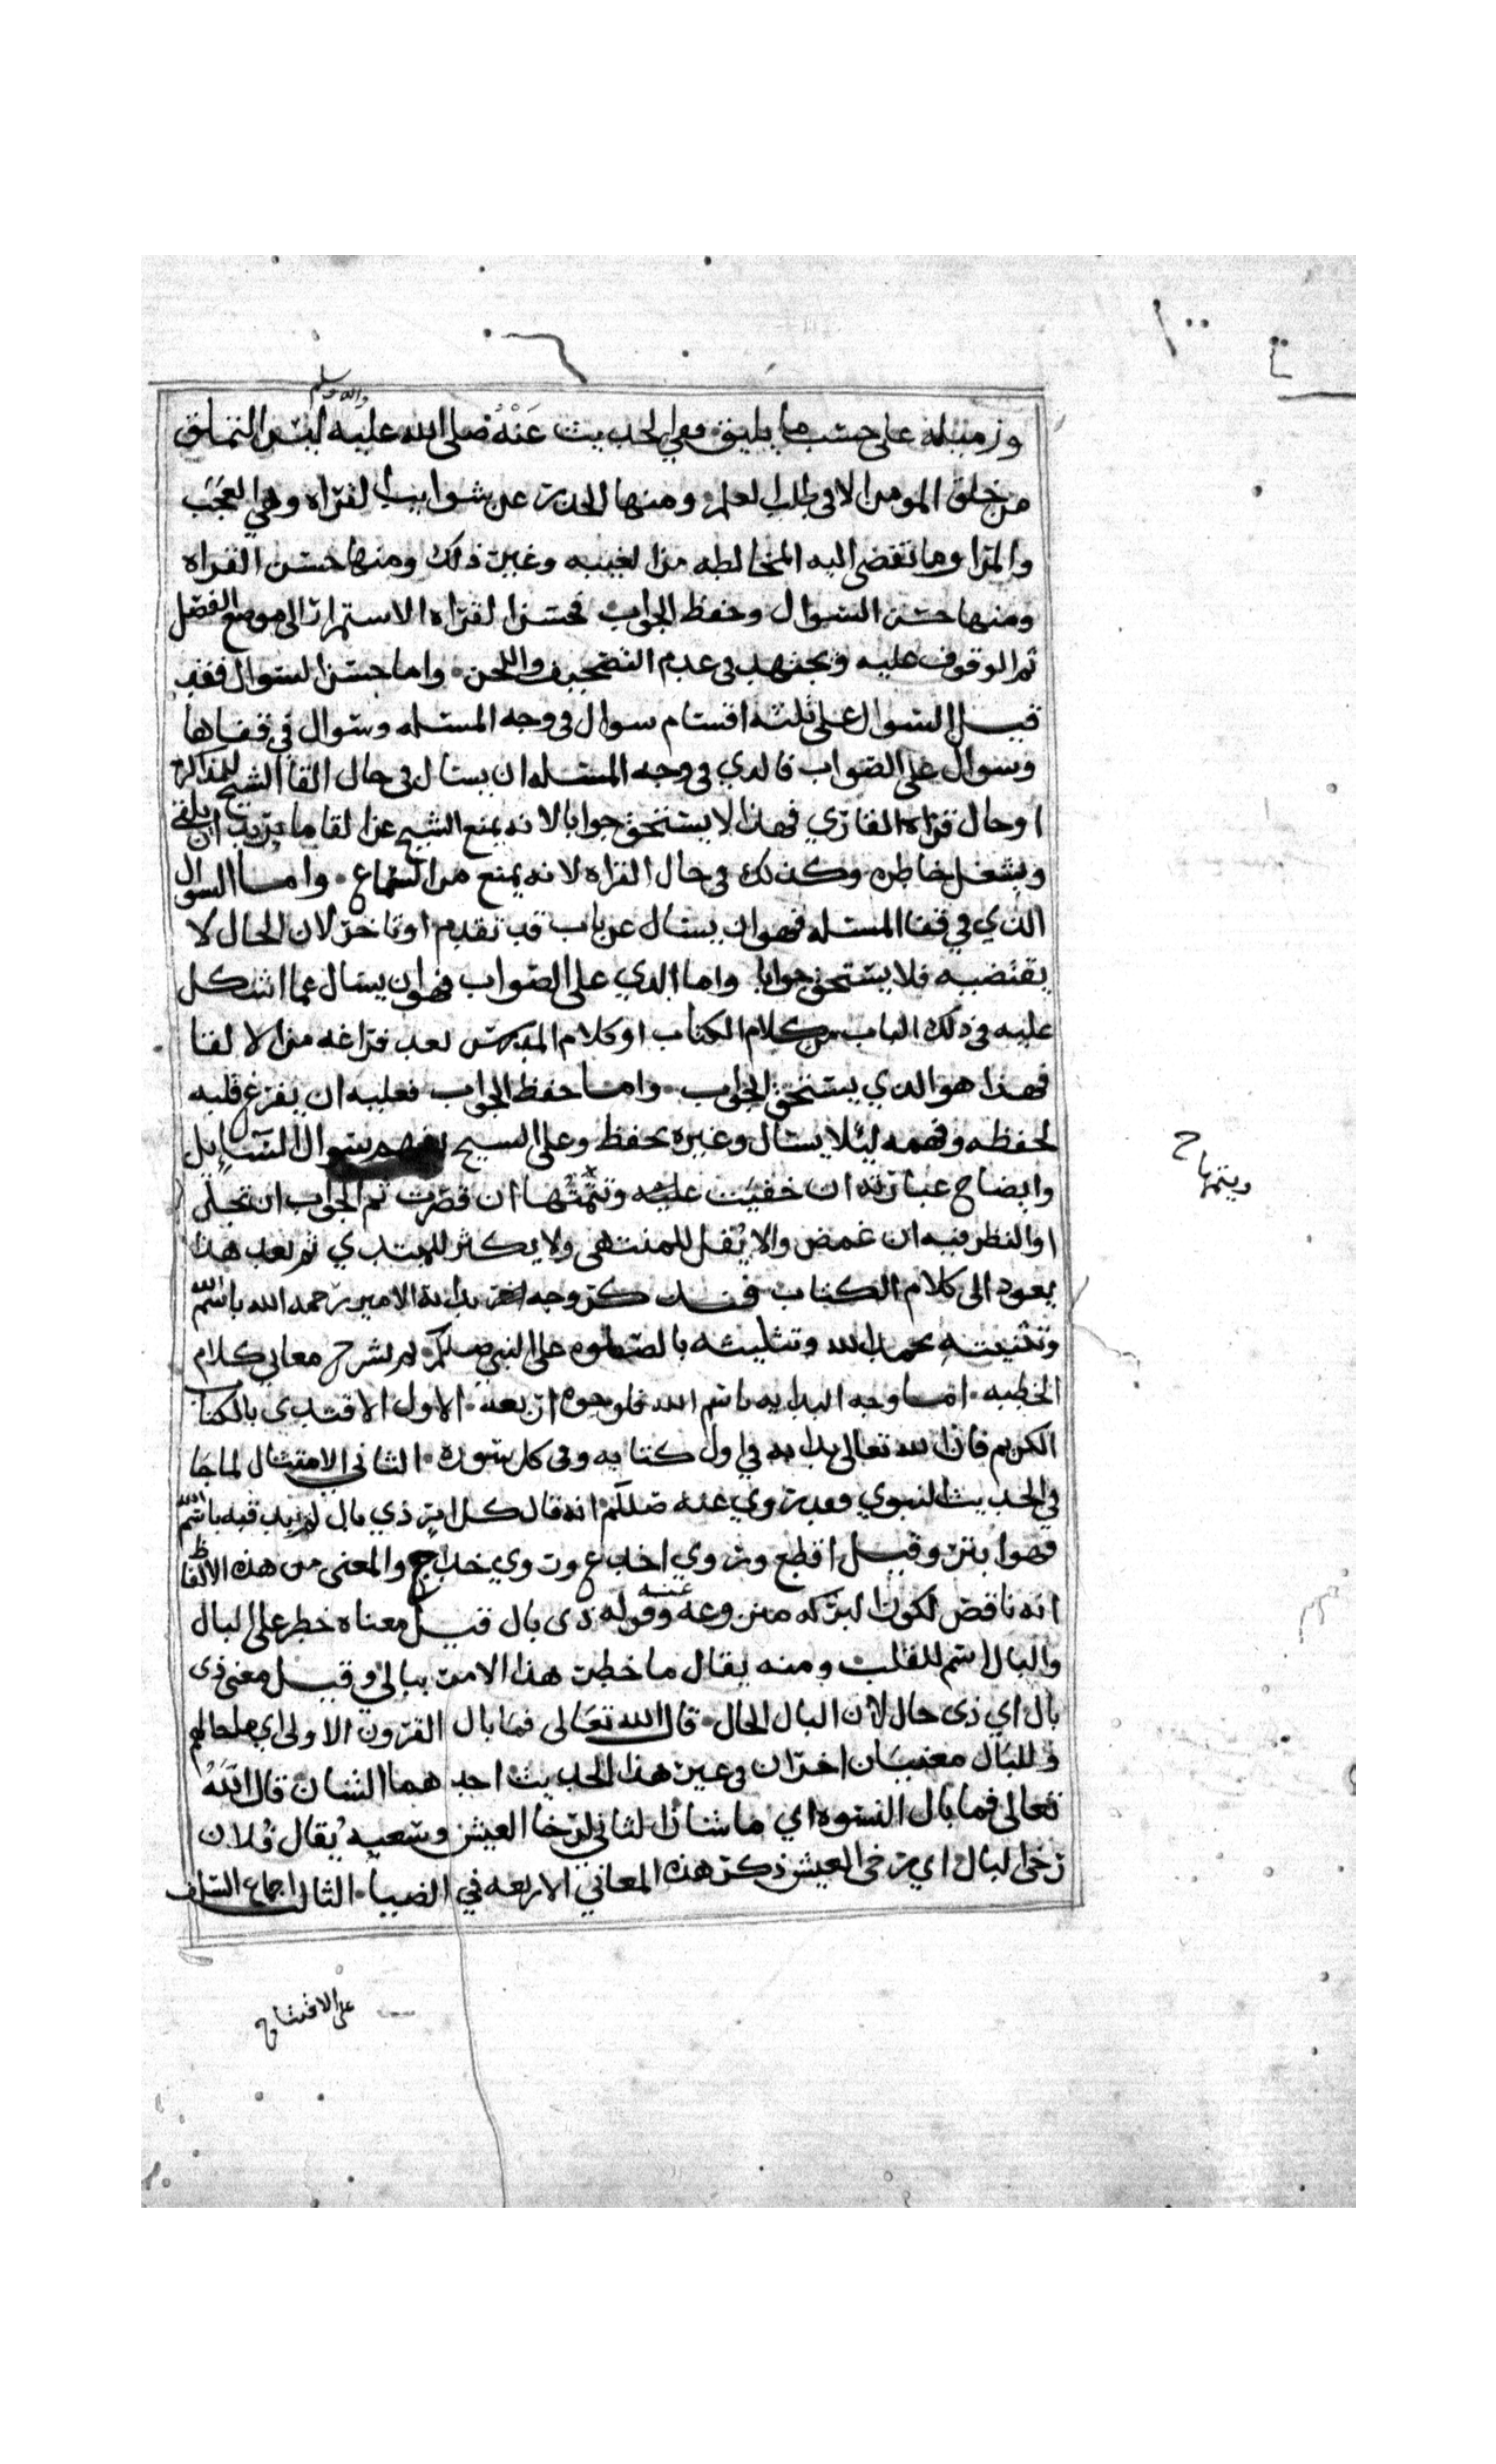 واله وسلم
وزميله على حسب ما يليق ففي الحديث عَنْهُ صلى الله عليه ليس التملق
من خلق المومن الا في طلب العلم ومنها الحذر من شوايب القراه وهي العجب
والمرا وما تفضي اليه المخالطه من الغيبه وغير ذلك ومنها حسن القراه
ومنها حسن السوال وحفظ الجواب فحسن القراه الاستمرار الى موضع الفصل
ثم الوقوف عليه ويجتهد في عدم التصحيف واللحن واما حسن السوال فقد
قيل السوال على ثلثه اقسام سوال في وجه المسئله وسوال في قفاها
وسوال على الصواب فالذي في وجه المسئله ان يسال في حال القا الشيخ للمذاكره
او حال قراه القاري فهذا لا يستحق جوابا لانه يمنع الشيخ عن القا ما يريد ان يلقي
ويشغل خاطره وكذلك في حال القراه لانه يمنع من السماع واما السوال
الذي في قفا المسئله فهو ان يسال عن باب قد تقدم او تاخر لان الحال لا
يقتضيه فلا يستحق جوابا واما الذي على الصواب فهو ان يسال عما اشكل
عليه في ذلك الباب من كلام الكتاب او كلام المدرس بعد فراغه من الالقا
فهذا هو الذي يستحق الجواب واما حفظ الجواب فعليه ان يفرغ قلبه
لحفظه وفهمه ليلا يسال وغيره يحفظ وعلى الشيخ تفهم سوال السايل
وايضاح عبارته ان خفيت عليه وتتمتها ان قصرت ثم الجواب ان تجلى
ويتمها ح
او النظر فيه ان غمض والا يقل للمنتهى ولا يكثر للمبتدي ثم بعد هذا
يعود الى كلام الكتاب فنذكر وجه بداية الامير رحمه الله باسم الله
وتثنيته بحمد الله وتثليثه بالصلوه على النبي صللم ثم نشرح معاني كلام
الخطبه اما وجه البدايه باسم الله فلوجوه اربعه الاول الاقتدى بالكتاب
الكريم فان الله تعالى بدا به في اول كتابه وفي كل سورة الثاني الامتثال لما جا
في الحديث النبوي فقد روي عنه صللم انه قال كل امر ذي بال لم يبد فيه باسم الله
فهو ابتر وقيل اقطع وروي اجذع وروي خداج والمعنى من هذه الالفاظ
انه ناقص لكون البركه منزوعه عنه وقوله ذى بال قيل معناه خطر على البال
والبال اسم للقلب ومنه يقال ما خطر هذا الامر ببالي وقيل معنى ذى
بال اي ذى حال لان البال الحال قال الله تعالى فما بال القرون الاولى اي ما حالهم
وللبال معنيان اخران في غير هذا الحديث احدهما الشان قال الله
تعالى فما بال النسوه اي ما شان الثاني رخا العيش وسعته يقال فلان
رخي البال اي رخي العيش ذكر هذه المعاني الاربعه في الضيا الثالث اجماع السلف
على الافتتاح